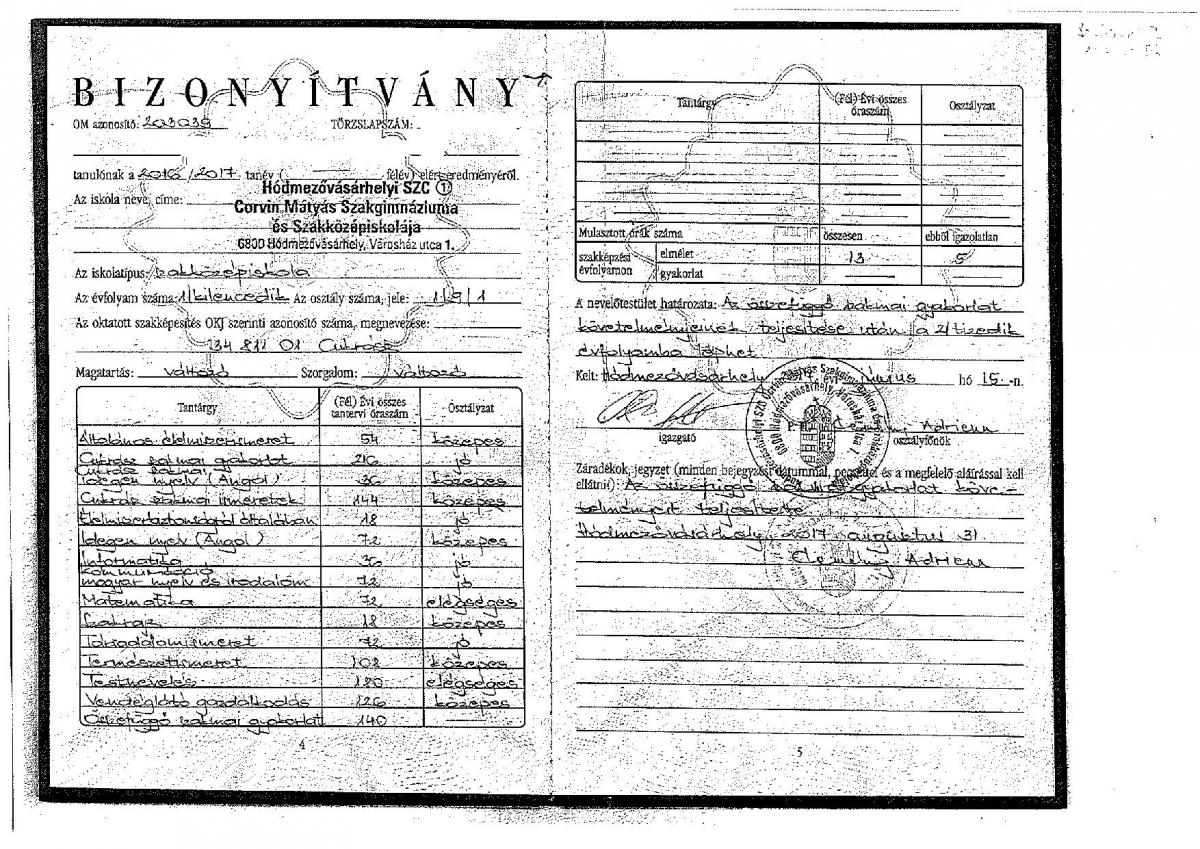 BIZONYÍTVÁNY
OM azonosító: 203039 TÖRZSLAPSZÁM:
tanulónak a 2016/2017. tanév ( félév) elért eredményéről.
Az iskola neve, címe:
Hódmezővásárhelyi SZC ①
Corvin Mátyás Szakgimnáziuma
és Szakközépiskolája
6800 Hódmezővásárhely, Városház utca 1.
Az iskolatípus: szakközépiskola
Az évfolyam száma: 1/kilencedik Az osztály száma, jele: 1/9/1
Az oktatott szakképesítés OKJ szerinti azonosító száma, megnevezése:
34 811 01 Cukrász
Magatartás: változó Szorgalom: változó
Tantárgy (Fél) Évi összes tantervi óraszám Osztályzat
Általános élelmiszerismeret 54 közepes
Cukrász szakmai gyakorlat 216 jó
Cukrász szakmai
idegen nyelv (Angol) 36 közepes
Cukrász szakmai ismeretek 144 közepes
Élelmiszerbiztonságról általában 18 jó
Idegen nyelv (Angol) 72 közepes
Informatika 36 jó
Kommunikáció
magyar nyelv és irodalom 72 jó
Matematika 72 elégséges
Szakrajz 18 közepes
Társadalomismeret 72 jó
Természetismeret 108 közepes
Testnevelés 180 elégséges
Vendéglátó gazdálkodás 126 közepes
Összefüggő szakmai gyakorlat 140
4
Tantárgy (Fél) Évi összes óraszám Osztályzat
Mulasztott órák száma összesen ebből igazolatlan
szakképzési évfolyamon elmélet 13 5
gyakorlat
A nevelőtestület határozata: Az összefüggő szakmai gyakorlat
követelményeinek teljesítése után a 2/tizedik
évfolyamba léphet
Kelt: Hódmezővásárhely hó 15.-n.
Adrienn
igazgató osztályfőnök
Záradékok, jegyzet (minden bejegyzést dátummal, pecséttel és a megfelelő aláírással kell
ellátni): Az összefüggő szakmai gyakorlat köve-
telményeit teljesítette
Hódmezővásárhely, 2017 augusztus 31
Adrienn
5